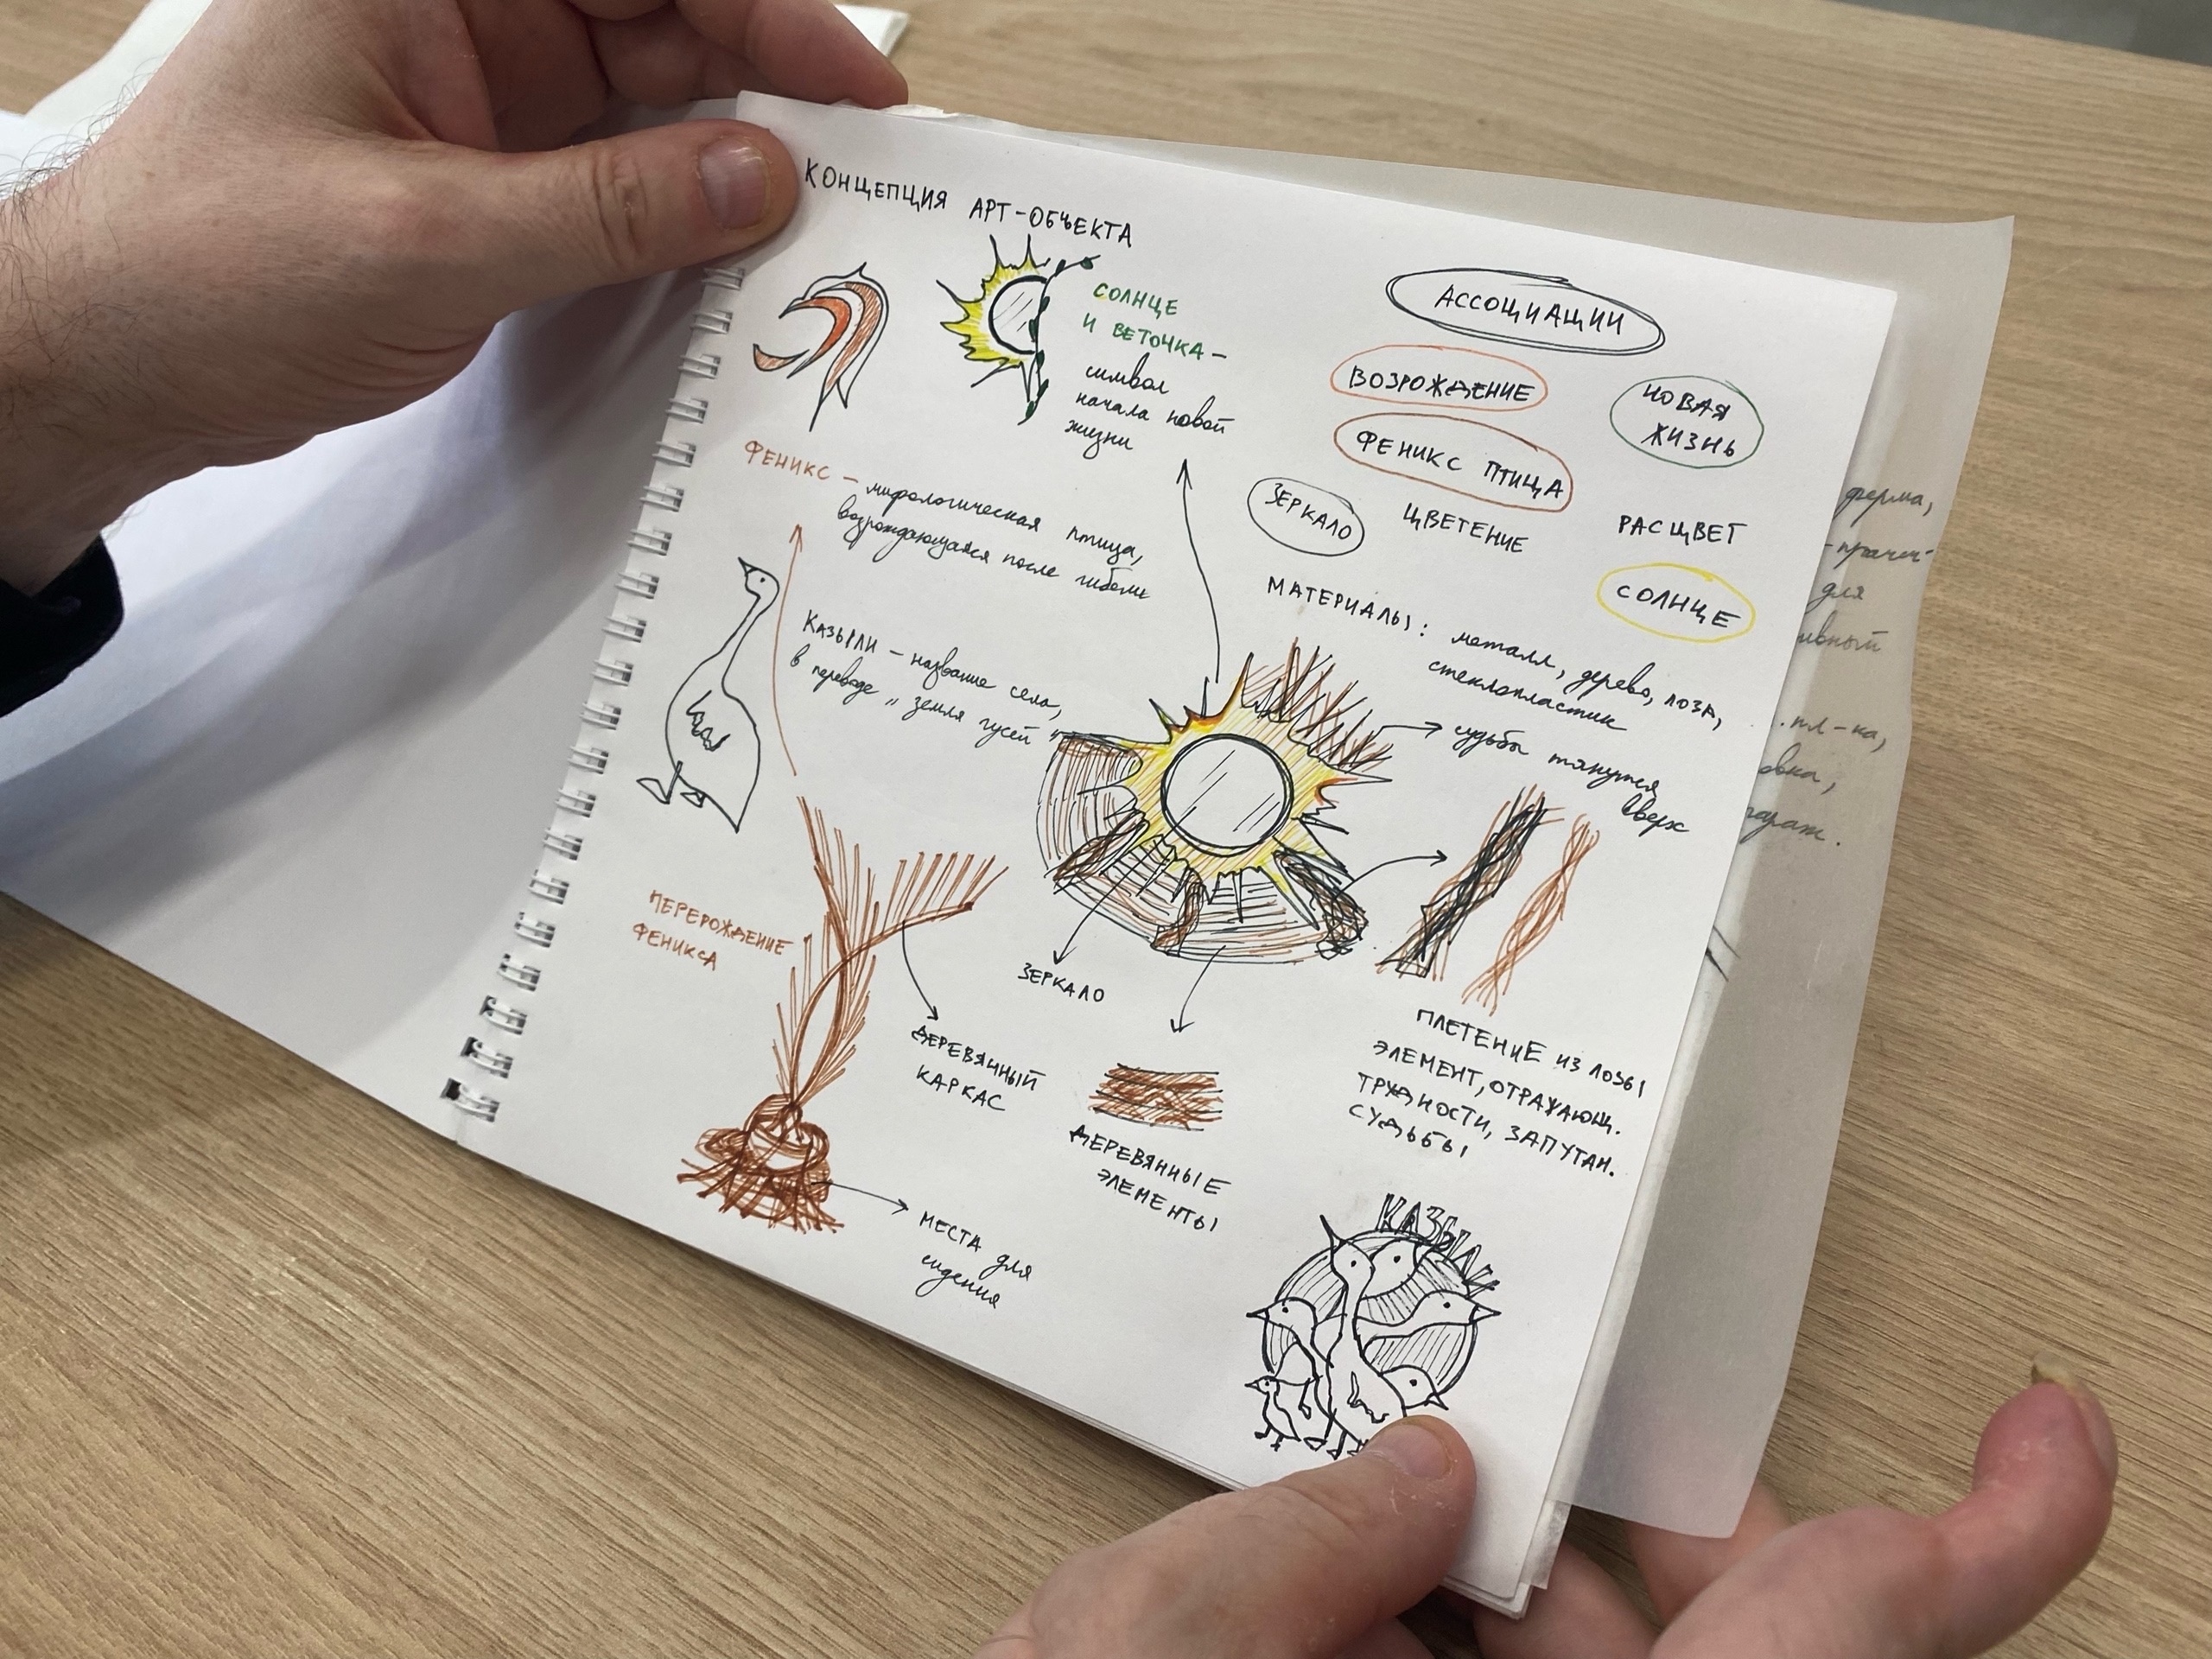 КОНЦЕПЦИЯ АРТ-ОБЪЕКТА
СОЛНЦЕ
И ВЕТОЧКА –
символ
начала новой
жизни
ФЕНИКС – мифологическая птица,
возрождающаяся после гибели
КАЗЫЛИ – название села,
в переводе „земля гусей"
ПЕРЕРОЖДЕНИЕ
ФЕНИКСА
ДЕРЕВЯННЫЙ
КАРКАС
МЕСТА для
сидения
АССОЦИАЦИИ
ВОЗРОЖДЕНИЕ
НОВАЯ
ЖИЗНЬ
ФЕНИКС ПТИЦА
ЗЕРКАЛО
ЦВЕТЕНИЕ
РАСЦВЕТ
СОЛНЦЕ
МАТЕРИАЛЫ: металл, дерево, лоза,
стеклопластик
судьбы тянутся
вверх
ЗЕРКАЛО
ДЕРЕВЯННЫЕ
ЭЛЕМЕНТЫ
ПЛЕТЕНИЕ ИЗ ЛОЗЫ
ЭЛЕМЕНТ, ОТРАЖАЮЩ.
ТРУДНОСТИ, ЗАПУТАН.
СУДЬБЫ
КАЗЫЛИ
ферма,
для